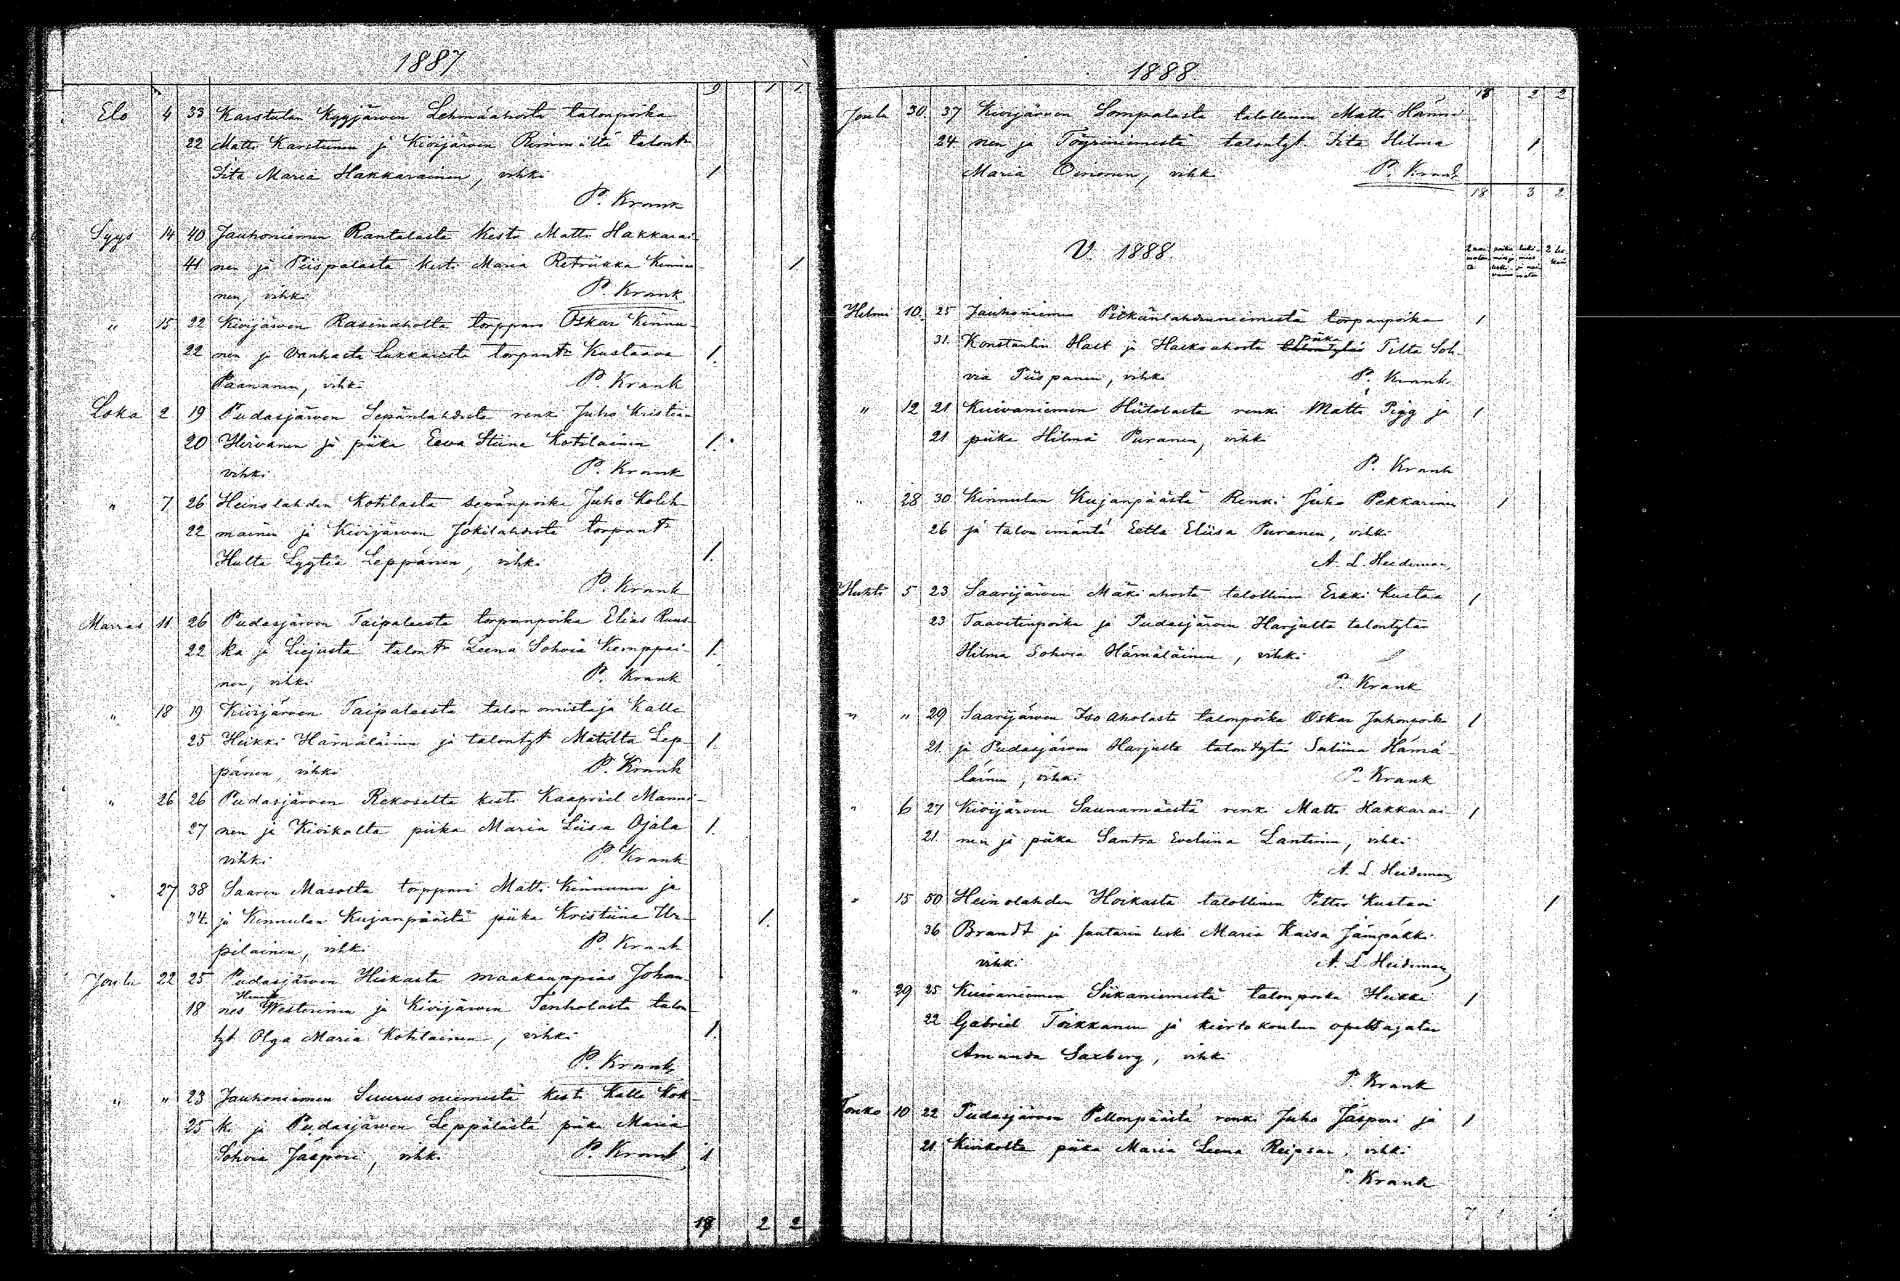 1887
9 1 1
Elo 4 33 Karstulan Kyyjärven Lehmäahosta talonpoika
22 Matti Karetunen ja Kivijärven talontr
Sita Maria Hakkarainen, vihki 1
P. Krank
Syys 14 40 Jauhoniemen Rantalasta leski Matti Hakkarai-
41 nen ja Piispalasta leski Maria Retriikka Kinnu- 1
nen, vihki P. Krank
" 15 22 Kivijärven Rasinaholta torppari Oskar Kinnu-
22 nen ja torpantr Kustaava 1.
Paananen, vihki P. Krank
Loka 2 19 Pudasjärven Lepänlahdesta renki Juho Kristian
20 Hirvonen ja piika Eeva Stiina Kotilainen 1.
vihki P. Krank
" 7 26 Heinolahden Kotilasta sepänpoika Juho Koleh-
22 mainen ja Kivijärven Jokilahdesta torpantr
Hulta Lyytia Leppänen, vihki 1.
P. Krank
Marras 11 26 Pudasjärven Taipaleesta torpanpoika Elias Ruus-
22 ka ja talontr Leena Sohvia Kemppai- 1.
nen, vihki P. Krank
" 18 19 Kivijärven Taipaleesta talon omistaja Kalle
25 Heikki Hämäläinen ja talontyt Matilta Lep- 1.
pänen, vihki P. Krank
" 26 26 Pudasjärven Rekoselta leski Kaapriel Manni-
27 nen ja Kivikolta piika Maria Liisa Ojala 1.
vihki P. Krank
" 27 38 Saaren Masolta torppari Matti Kinnunen ja
34 ja Kinnulan Kujanpäästä piika Kristiina Ur- 1.
pilainen, vihki P. Krank
Joulu 22 25 Pudasjärven Hiekasta maakauppias Johan-
18 nes Westerinen ja Kivijärven Tenholasta talon-
tyt Olga Maria Kotilainen, vihki 1.
P. Krank
" " 23 Jauhoniemen Suurusniemestä leski Kalle Kok-
25 ki ja Pudasjärven Leppälästä piika Maria
Sohvia Jäsperi, vihki P. Krank 1
18 2 2
1888.
18 2 2
Joulu 30. 37 Kivijärven Lompalasta talollinen Matti Hänni-
24 nen ja Töyriniemestä talontyt. Sita Hilma 1
Maria Oinonen, vihki P. Krank
18 3 2
V. 1888.
Helmi 10. 25 Jauhoniemen Pitkänlahdenniemestä torpanpoika 1
31. Konstantin Halt ja Haikoahosta piika Tilta Soh-
via Piispanen, vihki P. Krank
" 12 21 Kuivaniemen Hiitolasta renki Matti Pigg ja 1
21 piika Hilma Puranen, vihki
P. Krank
" 28 30 Kinnulan Kujanpäästä Renki Juho Pekkarinen 1
26 ja talon emäntä Eetla Eliisa Puranen, vihki
A. L. Heideman
Huhti 5 23 Saarijärven Mäkiahosta talollinen Erkki Kustaa 1
23 Taavitinpoika ja Pudasjärven Harjulta talontytär
Hilma Sohvia Hämäläinen, vihki
P. Krank
" " 29 Saarijärven Iso aholasta talonpoika Oskar Juhonpoika 1
21. ja Pudasjärven Harjulta talontytär Hämä-
läinen, vihki P. Krank
" 6 27 Kivijärven Saunamäestä renki Matti Hakkarai- 1
21. nen ja piika Santra Eveliina Lantinen, vihki
A. L. Heideman
" 15 50 Heinolahden Hoikasta talollinen Petter Kustavi 1
36 Brandt ja leski Maria Kaisa Jämpäkki
vihki A. L. Heideman
" 29 25 Kuivaniemen Siikaniemestä talonpoika Heikki 1
22 Gabriel Toikkanen ja kiertokoulun opettajatar
Amanda Saxberg, vihki
P. Krank
Touko 10 22 Pudasjärven Pellonpäästä renki Juho Jäsperi ja 1
21 Kivikolta piika Maria Leena Reipsar, vihki
P. Krank
7 1 1